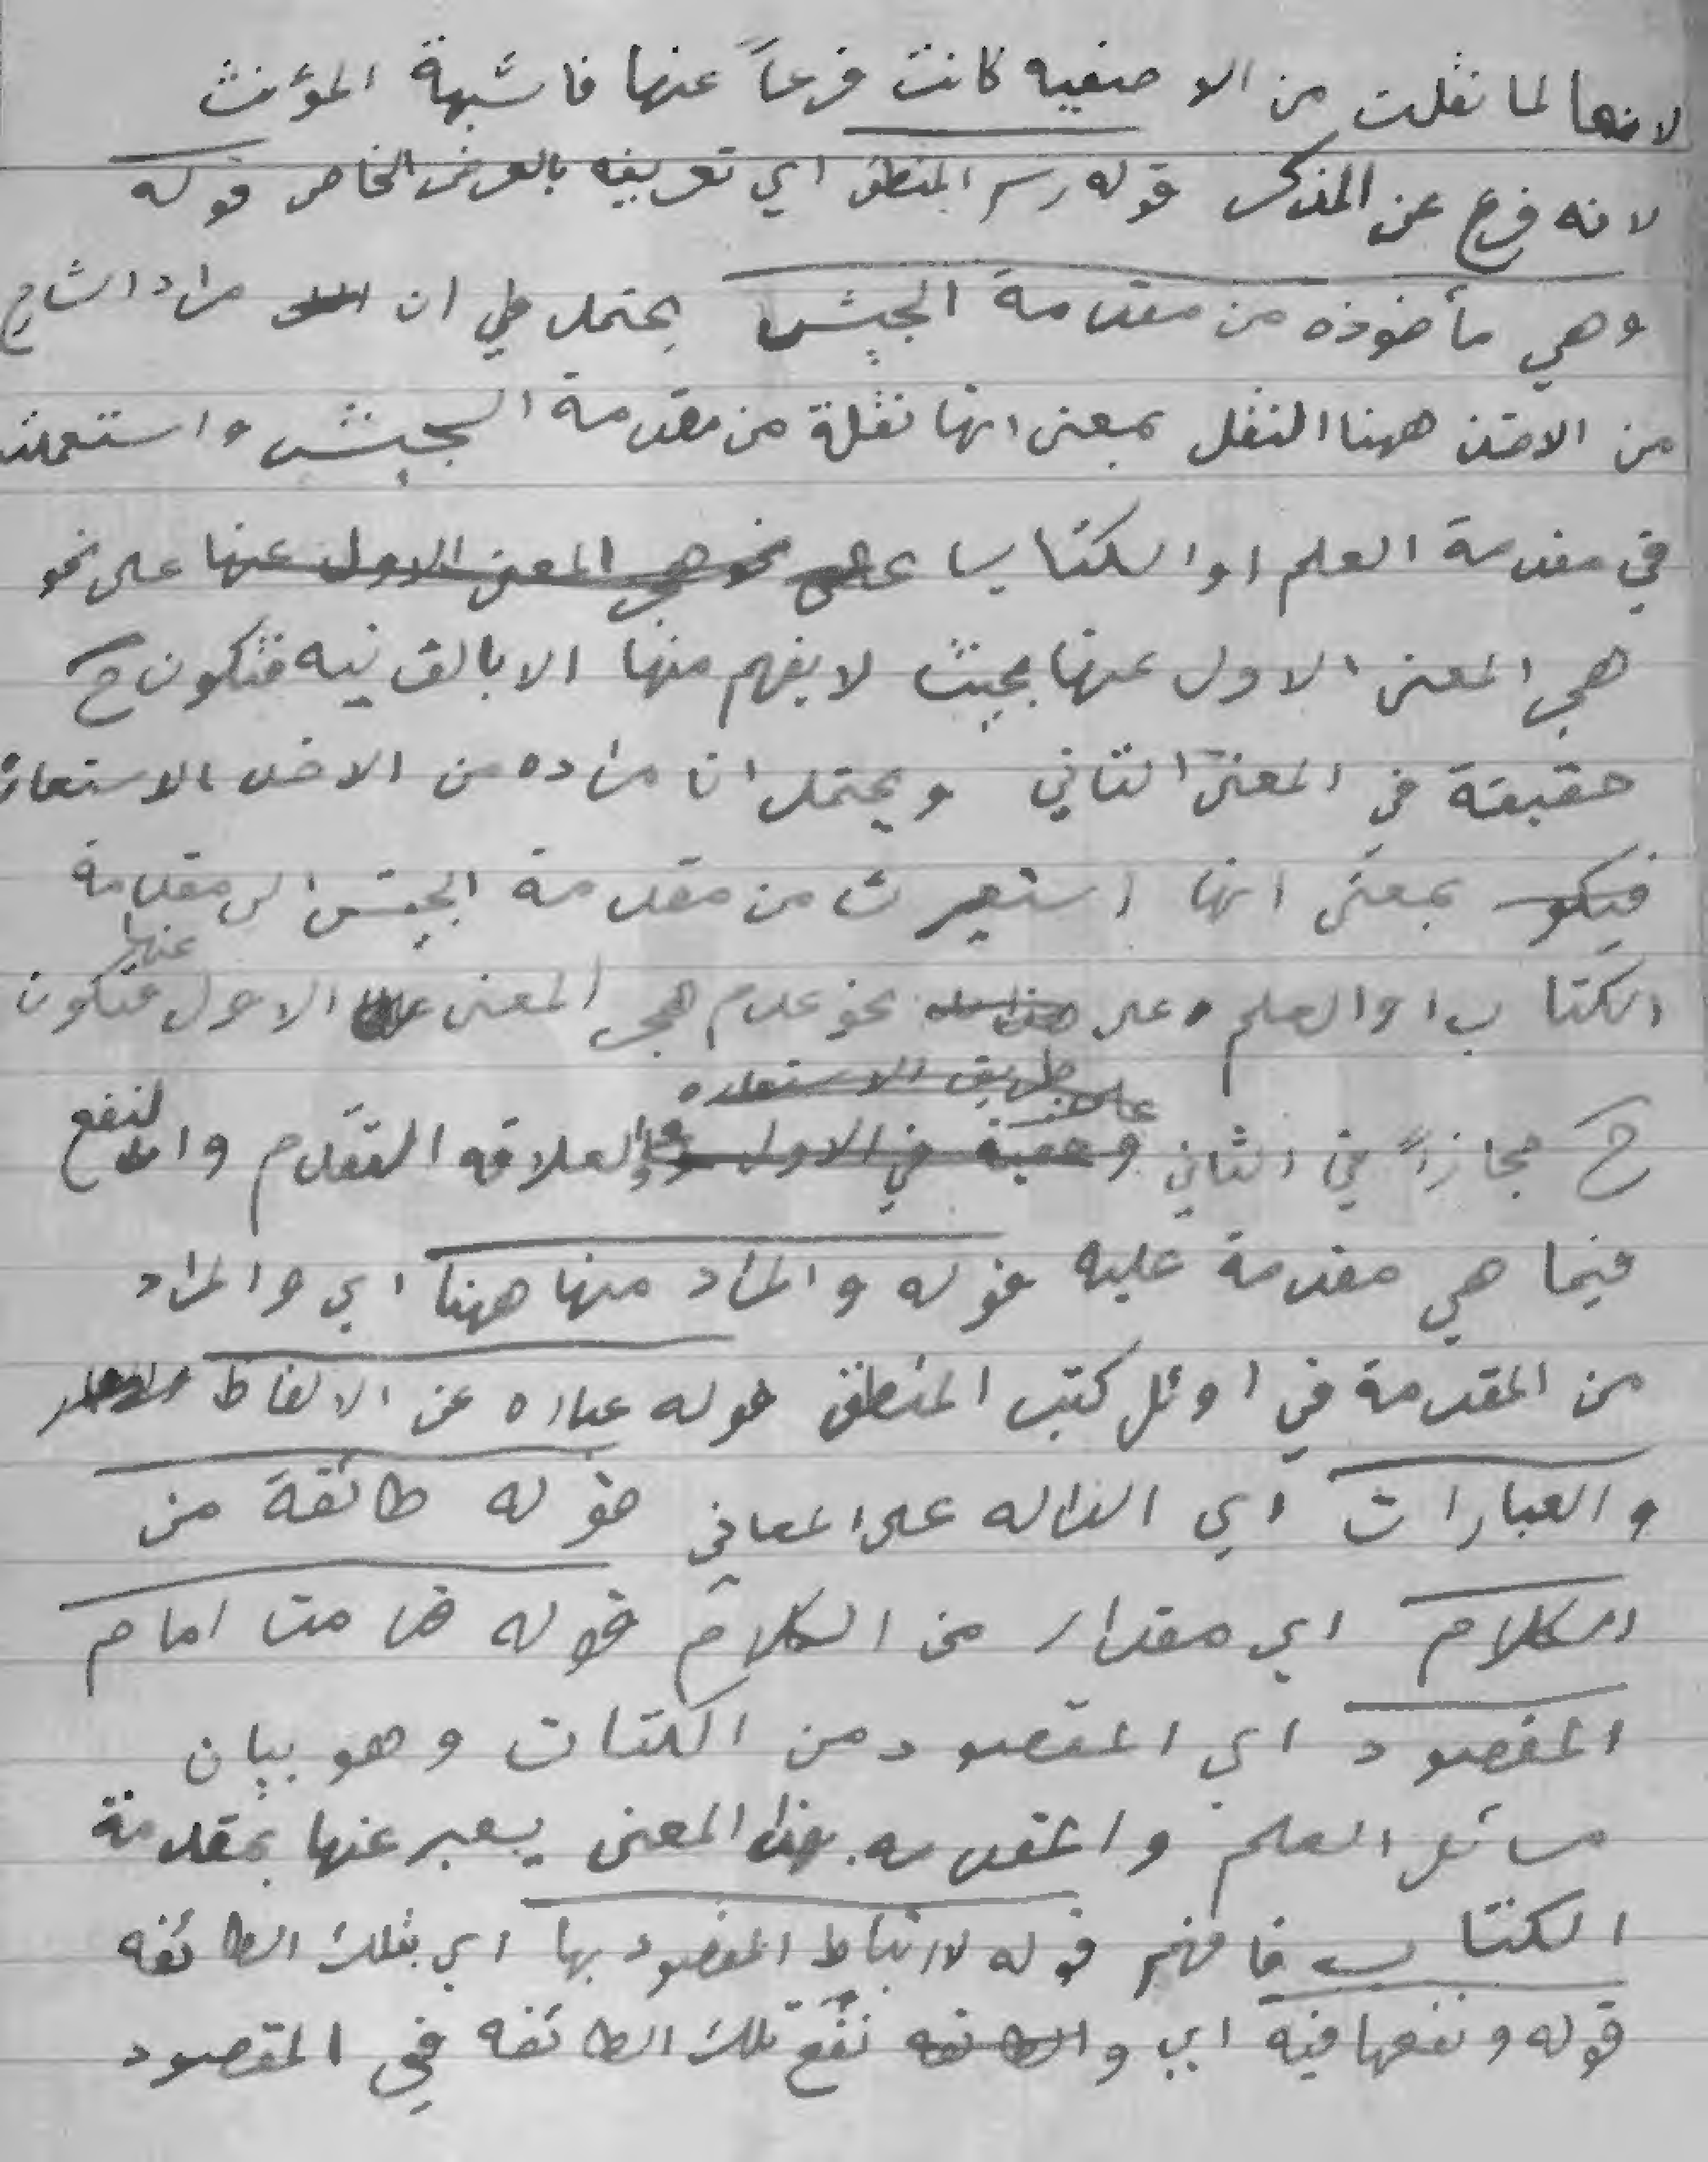 لانها لما نقلت من الاوصفيه كانت فرعاً عنها فاشبهة المؤنث
لانه فرع عن المذكر قوله رسم المنطق اي تعريفه بالعرض الخاص قوله
وهي مأخوذه من مقدمة الجيش يحتمل ان مراد الشارح
من الاخذ ههنا النقل بمعنى انها نقلة من مقدمة الجيش واستعملت
في مقدمة العلم او الكتاب على نحو هجر المعنى الاول عنها على نحو
هجر المعنى الاول عنها بحيث لا يفهم منها الا بالقرينه فتكون ح
حقيقة في المعنى الثاني ويحتمل ان مراده من الاخذ الاستعارة
فيكو بمعنى انها استعيرت من مقدمة الجيش الى مقدمة
الكتاب او العلم وعلى نحو عدم هجر المعنى الاول عنها فتكون
على طريق الاستعاره
ح مجازاً في الثاني وحقيقة في الاول والعلاقه التقدم والنفع
فيما هي مقدمة عليه قوله والمراد منها ههنا اي والمراد
من المقدمة في اوئل كتب المنطق قوله عباره عن الالفاظ
والعبارات اي الداله على المعاني قوله طائفة من
الكلام اي مقدار من الكلام قوله قدمت امام
المقصود اي المقصود من الكتاب وهو بيان
مسائل العلم والمقدمه بهذا المعنى يعبر عنها بمقدمة
الكتاب فافهم قوله لارتباط المقصود بها اي بتلك الطائفه
قوله ونفعها فيه اي والطائفه نفع تلك الطائفه في المقصود